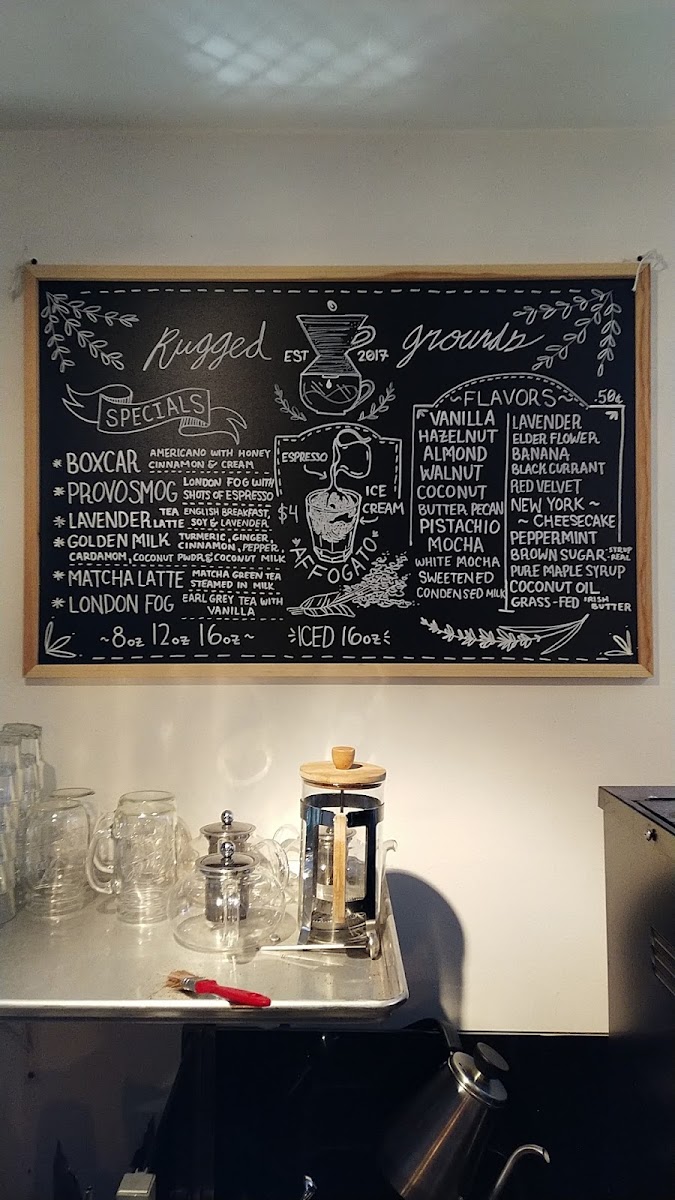 Rugged EST 2017 grounds
SPECIALS
* BOXCAR AMERICANO WITH HONEY
CINNAMON & CREAM
* PROVOSMOG LONDON FOG WITH
SHOTS OF ESPRESSO
* LAVENDER LATTE TEA ENGLISH BREAKFAST,
SOY & LAVENDER
* GOLDEN MILK TURMERIC, GINGER,
CINNAMON, PEPPER,
CARDAMOM, COCONUT PWDR & COCONUT MILK
* MATCHA LATTE MATCHA GREEN TEA
STEAMED IN MILK
* LONDON FOG EARL GREY TEA WITH
VANILLA
~8oz 12oz 16oz~
ICED 16oz
ESPRESSO
ICE
CREAM
$4
*AFFOGATO*
~FLAVORS~ .50¢
VANILLA
HAZELNUT
ALMOND
WALNUT
COCONUT
BUTTER PECAN
PISTACHIO
MOCHA
WHITE MOCHA
SWEETENED
CONDENSED MILK
LAVENDER
ELDER FLOWER
BANANA
BLACK CURRANT
RED VELVET
NEW YORK ~
~ CHEESECAKE
PEPPERMINT
BROWN SUGAR-SYRUP
-REAL
PURE MAPLE SYRUP
COCONUT OIL
GRASS-FED IRISH
BUTTER